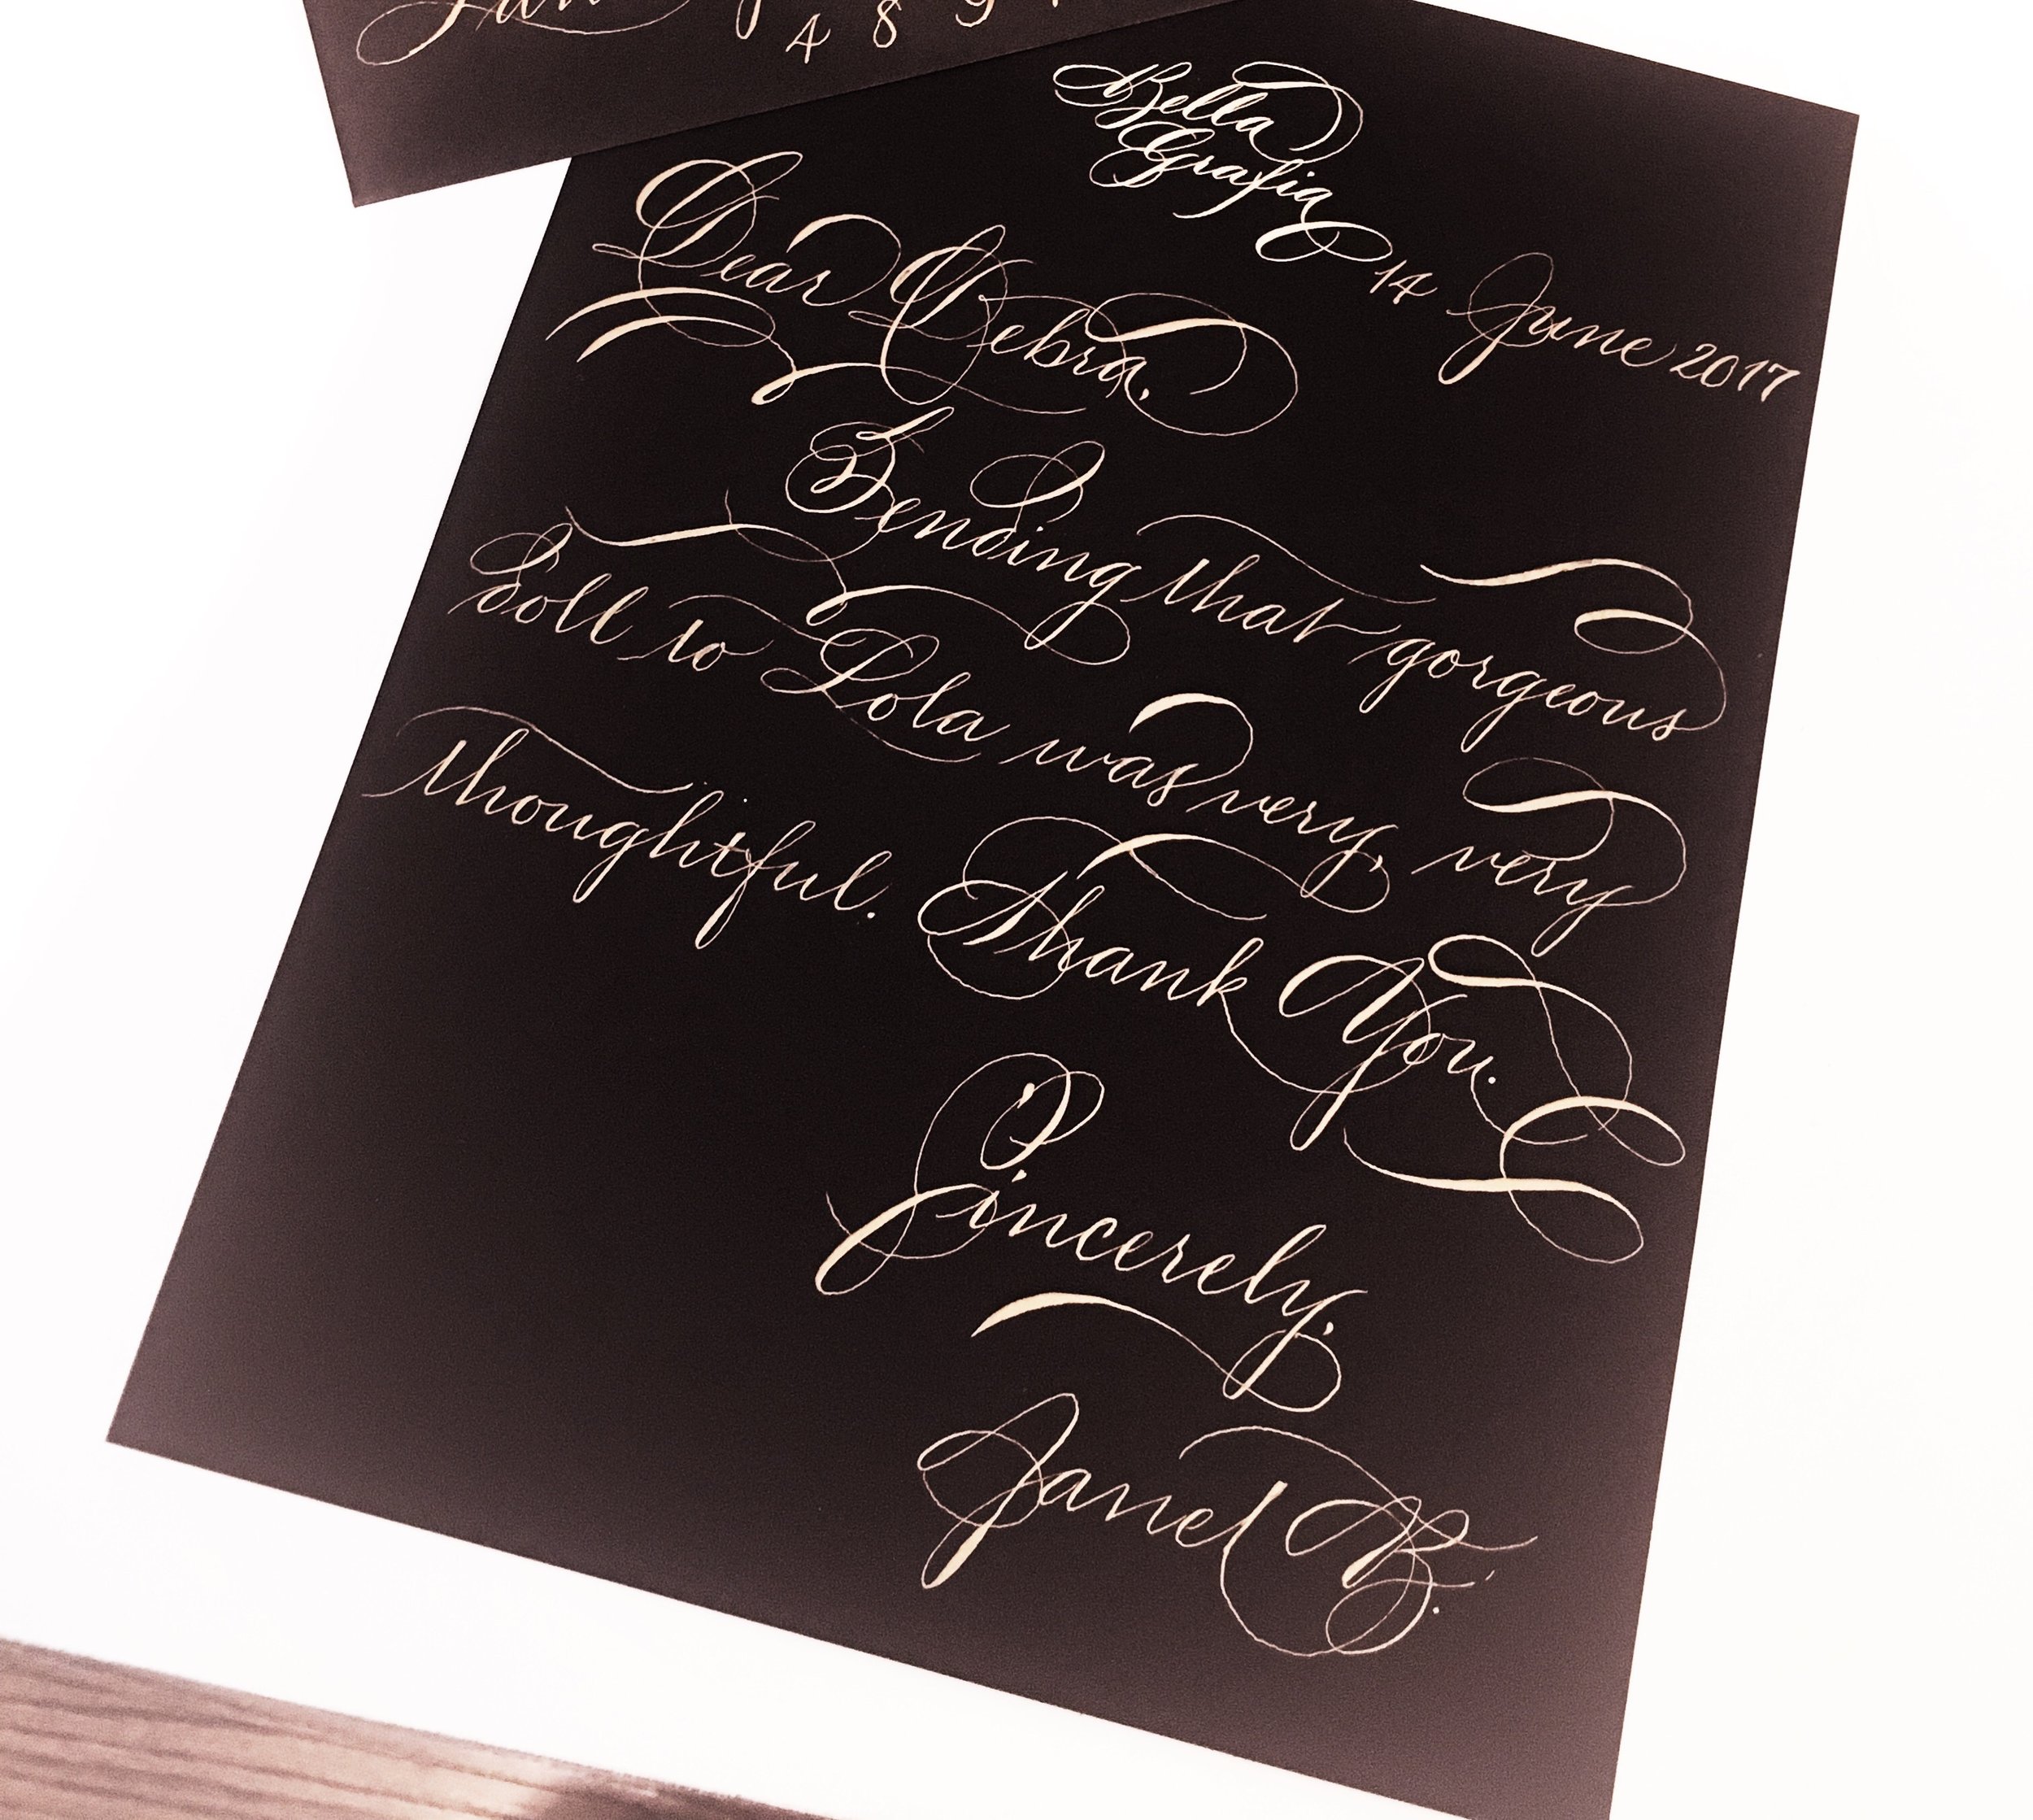 4 8
Bella
Grafia
14 June 2017
Dear Debra,
Sending that gorgeous
doll to Lola was very, very
thoughtful. Thank You.
Sincerely,
Janet B.